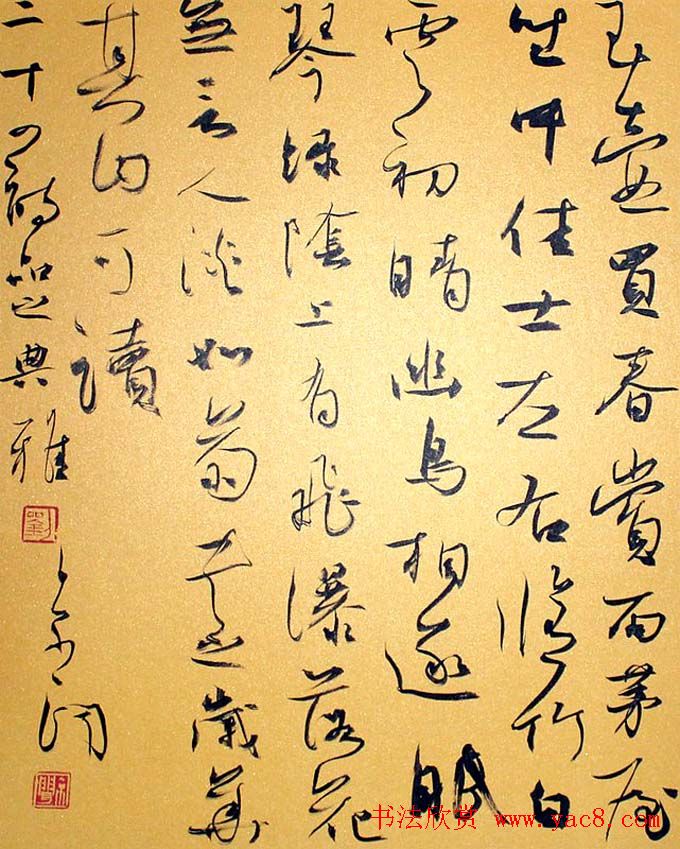 玉壺買春賞雨茅屋
坐中佳士左右脩竹白
雲初晴幽鳥相逐眠
琴綠陰上有飛瀑落花
無言人淡如菊書之歲華
其曰可讀
二十四詩品之典雅
书法欣赏 www.yac8.com